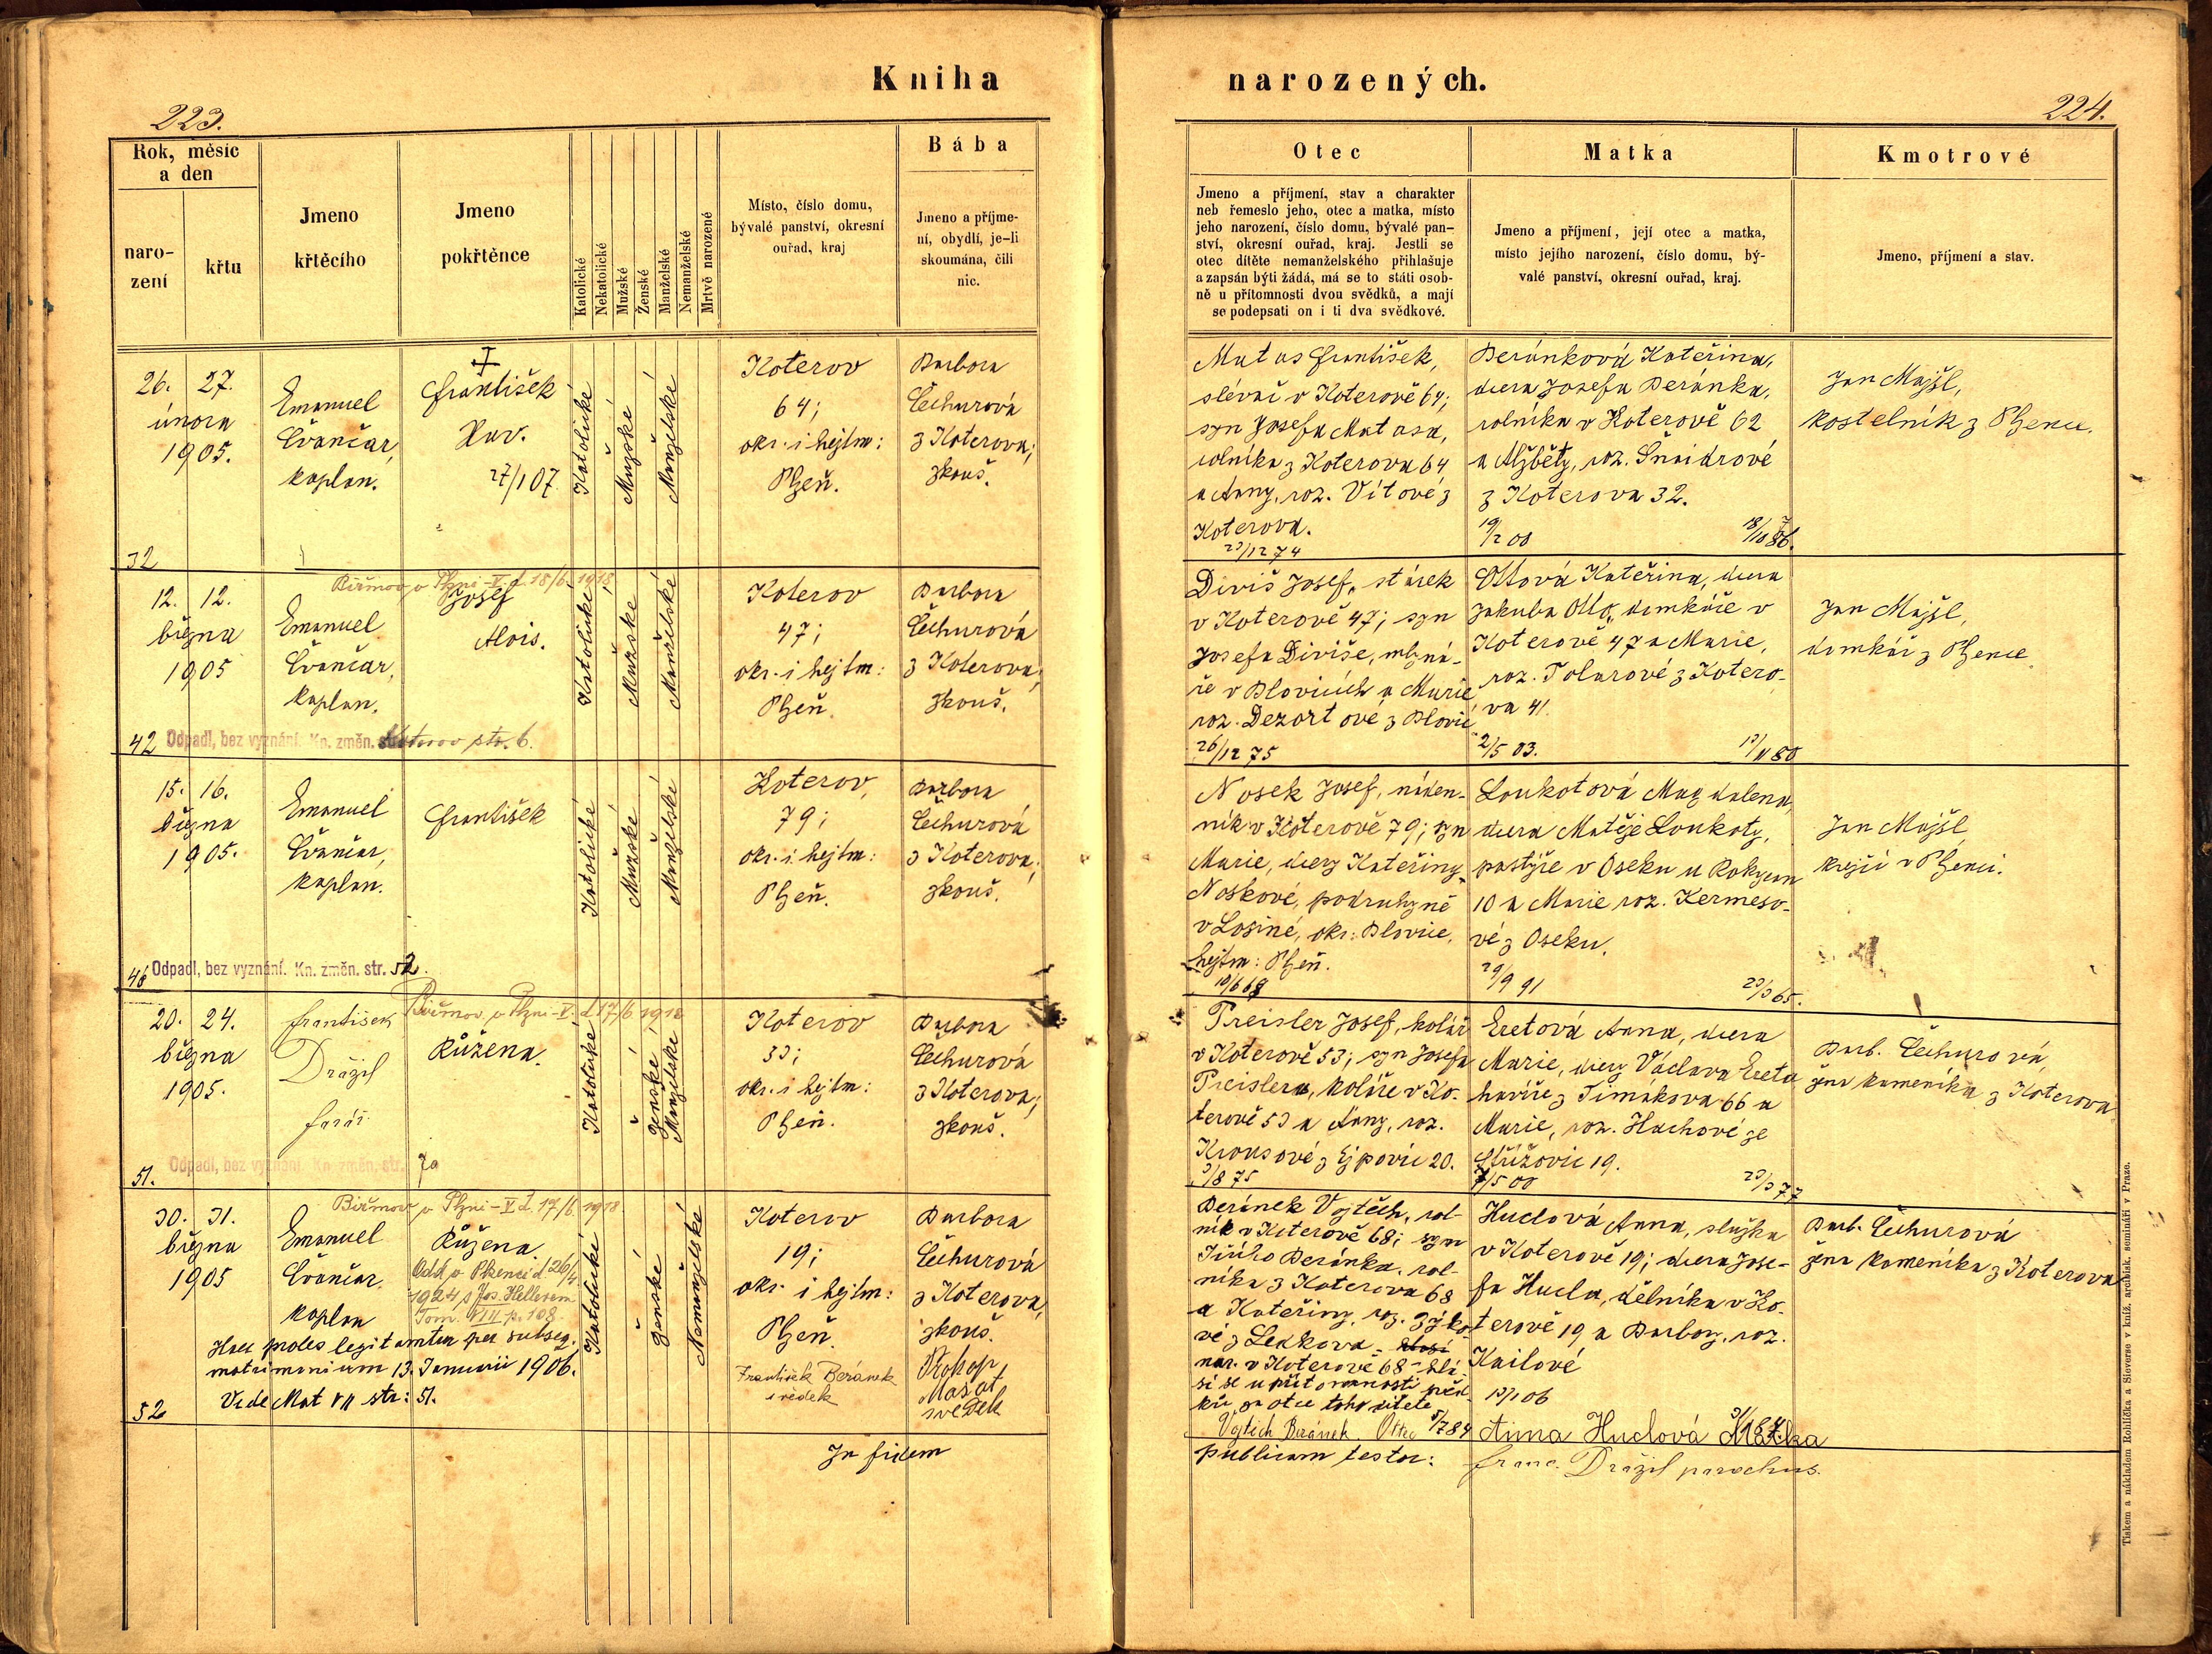 Kniha
223.
Rok, měsíc a den
naro-
zení
křtu
Jmeno
křtěcího
Jmeno
pokřtěnce
Katolické
Nekatolické
Mužské
Ženské
Manželské
Nemanželské
Mrtvě narozené
Místo, číslo domu,
bývalé panství, okresní
ouřad, kraj
Bába
Jmeno a příjme-
ní, obydlí, je-li
skoumána, čili
nic.
26. 27.
února
1905.
32
Emanuel
Cvančar,
kaplan.
František
Xav.
27/107
Katolické
Mužské
Manželské
Koterov
64;
okr. i hejtm:
Plzeň.
Barbora
Čechurová
z Koterova;
zkouš.
12. 12.
března
1905
42
Emanuel
Cvančar,
kaplan.
Biřmov. v Plzni-V. d. 18/6. 1918
Josef
Alois.
Odpadl, bez vyznání. Kn. změn. str. 6.
Katolické
Mužské
Manželské
Koterov
47;
okr. i hejtm:
Plzeň.
Barbora
Čechurová
z Koterova;
zkouš.
15. 16.
března
1905.
48
Emanuel
Cvančar,
kaplan.
František
Odpadl, bez vyznání. Kn. změn. str. 52.
Katolické
Mužské
Manželské
Koterov,
79;
okr. i hejtm:
Plzeň.
Barbora
Čechurová
z Koterova;
zkouš.
20. 24.
března
1905.
51.
František
Drážil
farář.
Biřmov. v Plzni-V. d. 17/6 1918
Růžena.
Odpadl, bez vyznání. Kn. změn. str. 7a
Katolické
Ženské
Manželské
Koterov
53;
okr. i hejtm:
Plzeň.
Barbora
Čechurová
z Koterova;
zkouš.
30. 31.
března
1905
52
Emanuel
Cvančar.
kaplan
Biřmov. v Plzni-V. d. 17/6. 1918
Růžena
Odd. v Plzenci d. 26/4
1924 s Jos. Hellerem
Tom. VIII p. 108.
Haec proles legitamtur per subseq.
matrimonium 13. Januarii 1906.
Vide Mat VII str: 51.
Katolické
Ženské
Nemanželské
Koterov
19;
okr. i hejtm:
Plzeň.
František Beránek
svědek
Barbora
Čechurová
z Koterova,
zkouš.
Prokop
Mašat
svědek
In fidem
narozených.
224.
Otec
Jmeno a příjmení, stav a charakter
neb řemeslo jeho, otec a matka, místo
jeho narození, číslo domu, bývalé pan-
ství, okresní ouřad, kraj. Jestli se
otec dítěte nemanželského přihlašuje
a zapsán býti žádá, má se to státi osob-
ně u přítomnosti dvou svědků, a mají
se podepsati on i ti dva svědkové.
Matka
Jmeno a příjmení, její otec a matka,
místo jejího narození, číslo domu, bý-
valé panství, okresní ouřad, kraj.
Kmotrové
Jmeno, příjmení a stav.
Matas František,
slévač v Koterově 64;
syn Josefa Matasa,
rolníka z Koterova 64
a Anny, roz. Vítové z
Koterova.
23/12 74
Beránková Kateřina,
dcera Josefa Beránka,
rolníka v Koterově 62
a Alžběty, roz. Šnaidrové
z Koterova 32.
19/2 00
Jan Majšl,
kostelník z Plzence.
Diviš Josef, stárek
v Koterově 47; syn
Josefa Diviše, mlyná-
ře v Blovicích a Marie
roz. Dezortové z Blovic
26/12 75
Ottová Kateřina, dcera
Jakuba Otty, domkáře v
Koterově 47 a Marie,
roz. Tolarové z Kotero-
va 41.
2/5 03.
13/11 80
Jan Majšl,
domkář z Plzence.
Nosek Josef, náden-
ník v Koterově 79; syn
Marie, dcery Kateřiny
Noskové, podruhyně
v Losiné, okr: Blovice,
hejtm: Plzeň.
Loukotová Magdalena,
dcera Matěje Loukoty,
pastýře v Oseku u Rokycan
10 a Marie roz. Kermeso-
vé z Oseku.
29/9 91
23/3 65.
Jan Majšl,
krejčí v Plzenci.
Preisler Josef, kolář
v Koterově 53; syn Josefa
Preislera, koláře v Ko-
terově 53 a Anny, roz.
Krausové z Ejpovic 20.
3/8 75
Eretová Anna, dcera
Marie, dcery Václava Ereta
havíře z Timákova 66 a
Marie, roz. Hachové ze
Střížovic 19.
7/5 00
23/3 77
Barb. Čechurová,
žena kameníka z Koterova
Beránek Vojtěch, rol-
ník v Koterově 68; syn
Jiřího Beránka, rol-
níka z Koterova 68
a Kateřiny, roz. Zýko-
vé z Ledkova - hlásí
nar. v Koterově 68 - hlá-
sí se u přítomnosti svěd-
ků za otce toho dítěte
Vojtěch Beránek. Otec 5/7 84
Huclová Anna, služka
v Koterově 19; dcera Jose-
fa Hucla, dělníka v Ko-
terově 19 a Barbory, roz.
Kailové
13/1 06
Anna Huclová Matka
Barb. Čechurová
žena kameníka z Koterova
publicam testor:
Franc. Drážil parochus.
Tiskem a nákladem Rohlíčka a Sieverse v kníž. arcibisk. semináři v Praze.